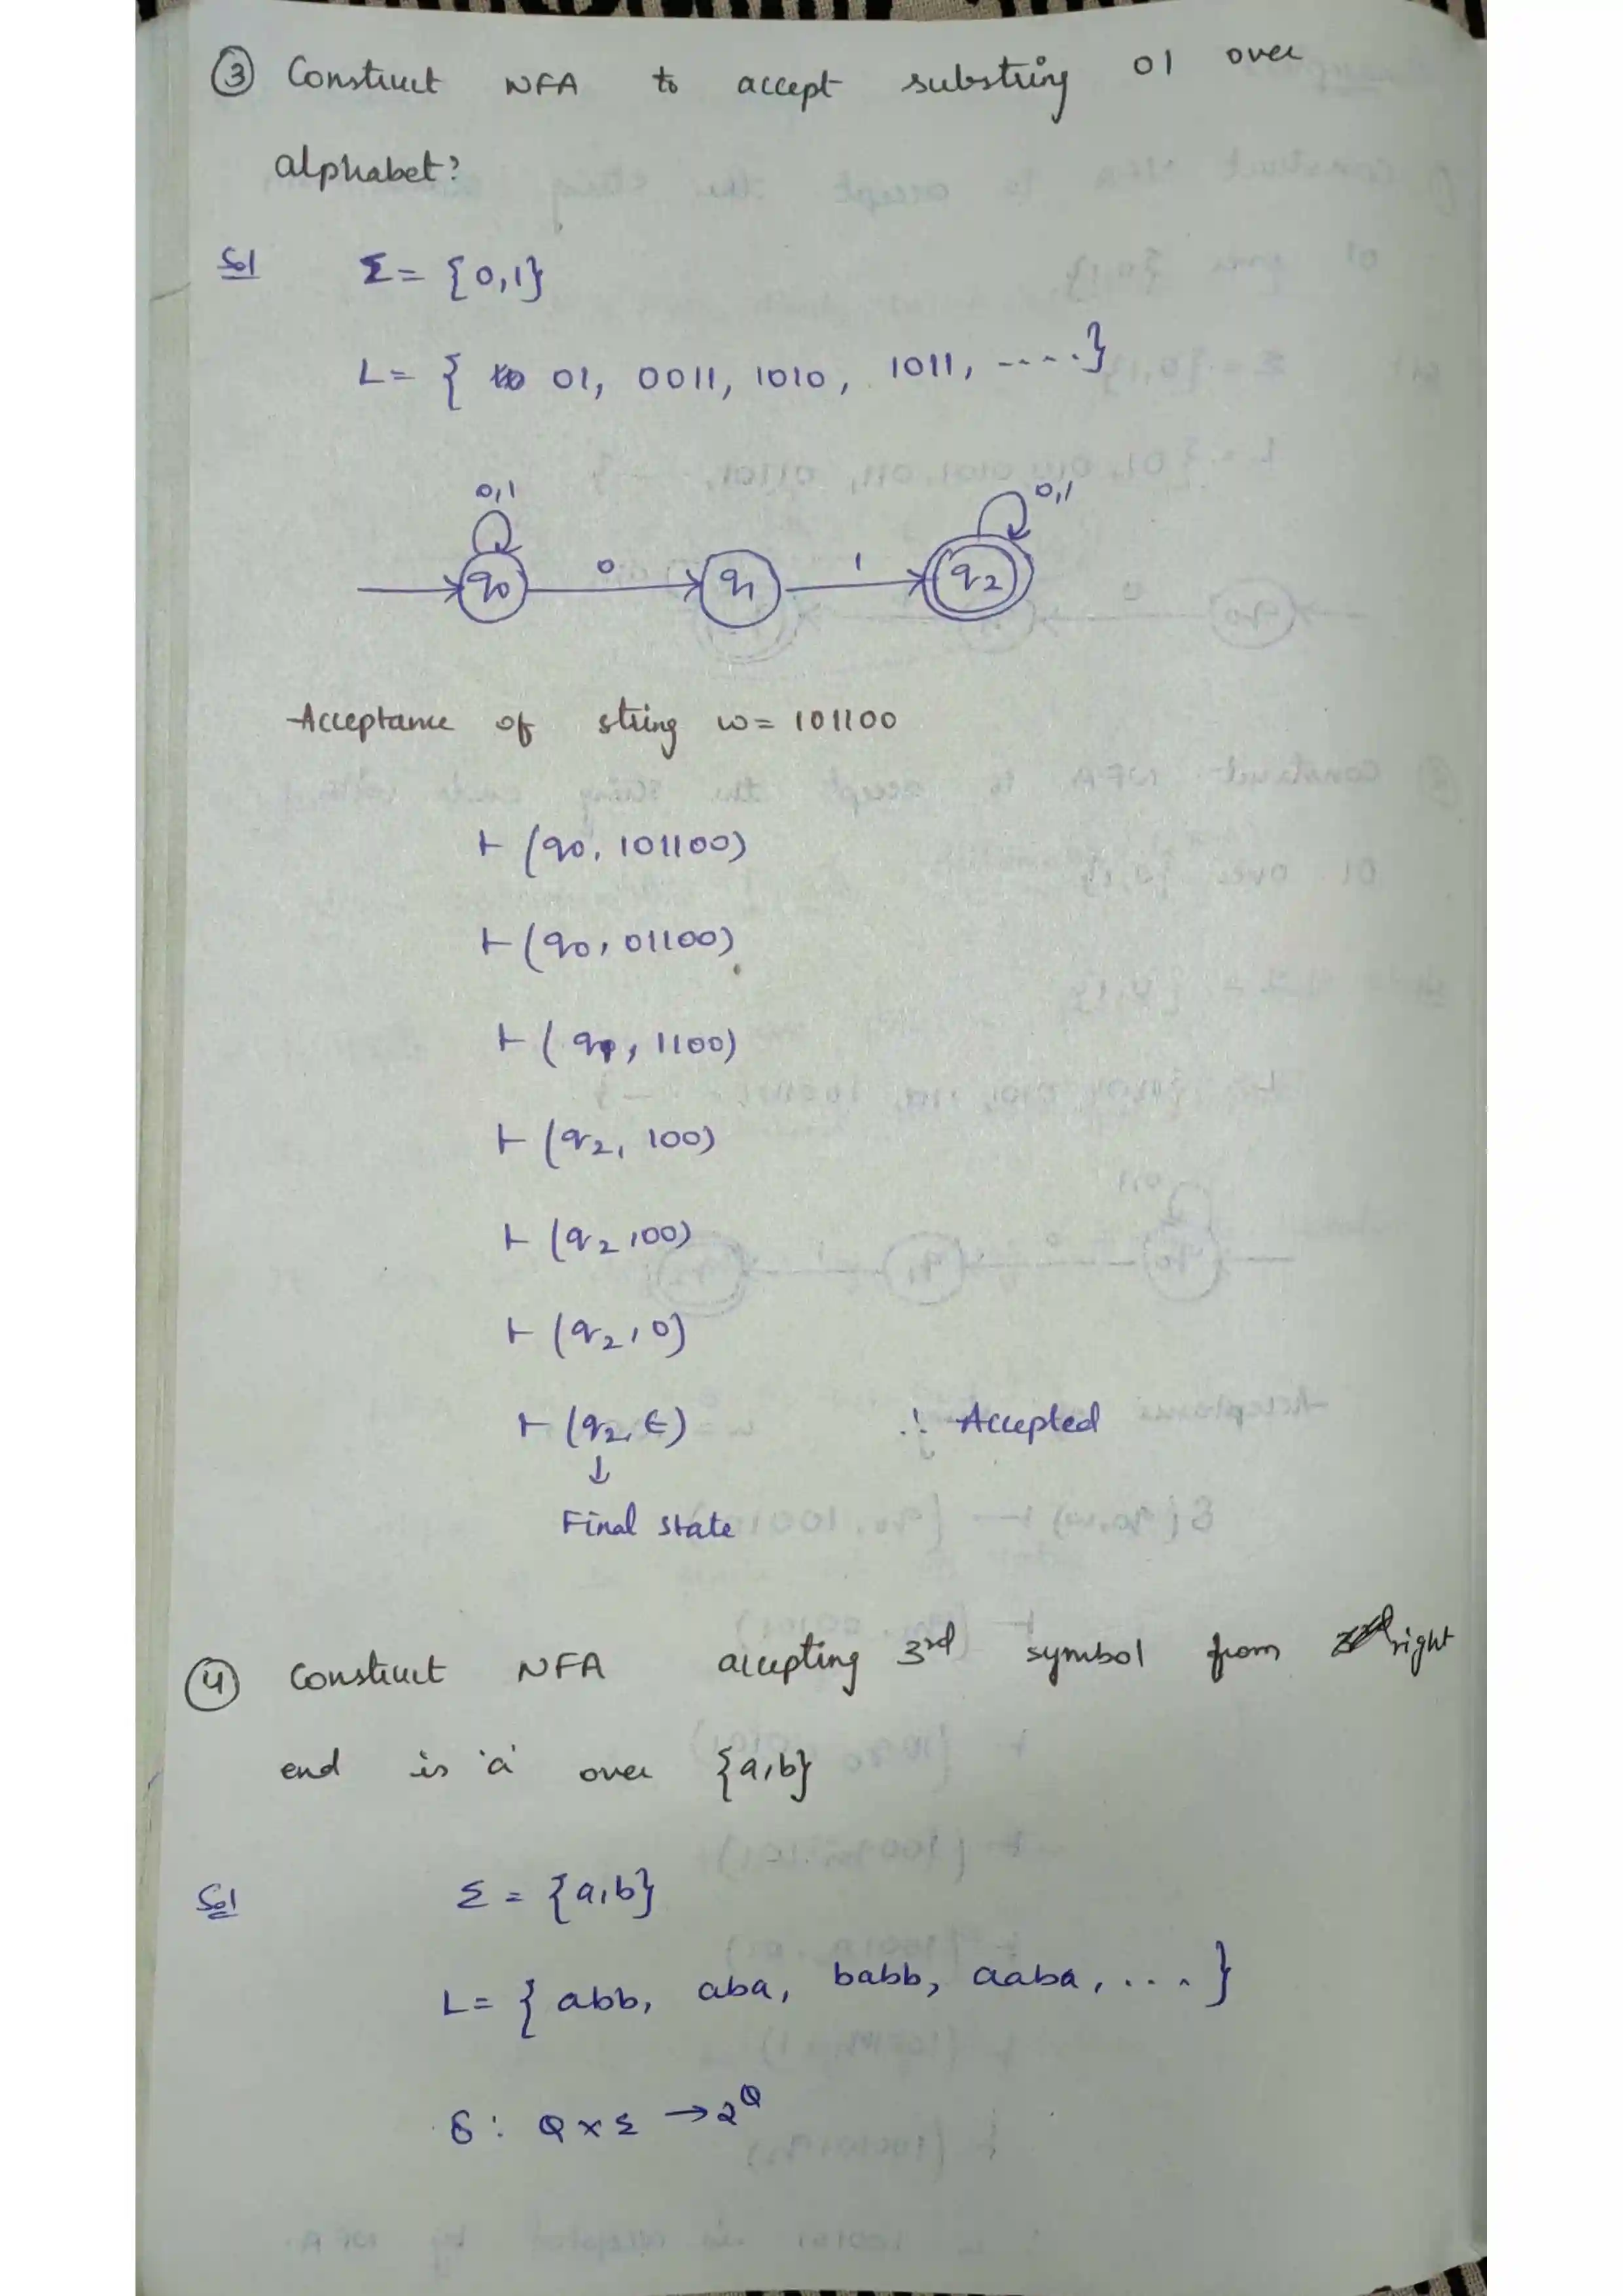 ③ Construct NFA to accept substring 01 over
alphabet?
Sol Σ = {0,1}
L = { 01, 0011, 1010, 1011, ----}
0,1 0,1
q0 0 q1 1 q2
Acceptance of string w = 101100
⊢ (q0, 101100)
⊢ (q0, 01100)
⊢ (q1, 1100)
⊢ (q2, 100)
⊢ (q2, 00)
⊢ (q2, 0)
⊢ (q2, ε) ∴ Accepted
↓
Final state
④ Construct NFA accepting 3rd symbol from right
end is 'a' over {a,b}
Sol Σ = {a,b}
L = { abb, aba, babb, aaba, ....}
δ: Q × Σ → 2^Q